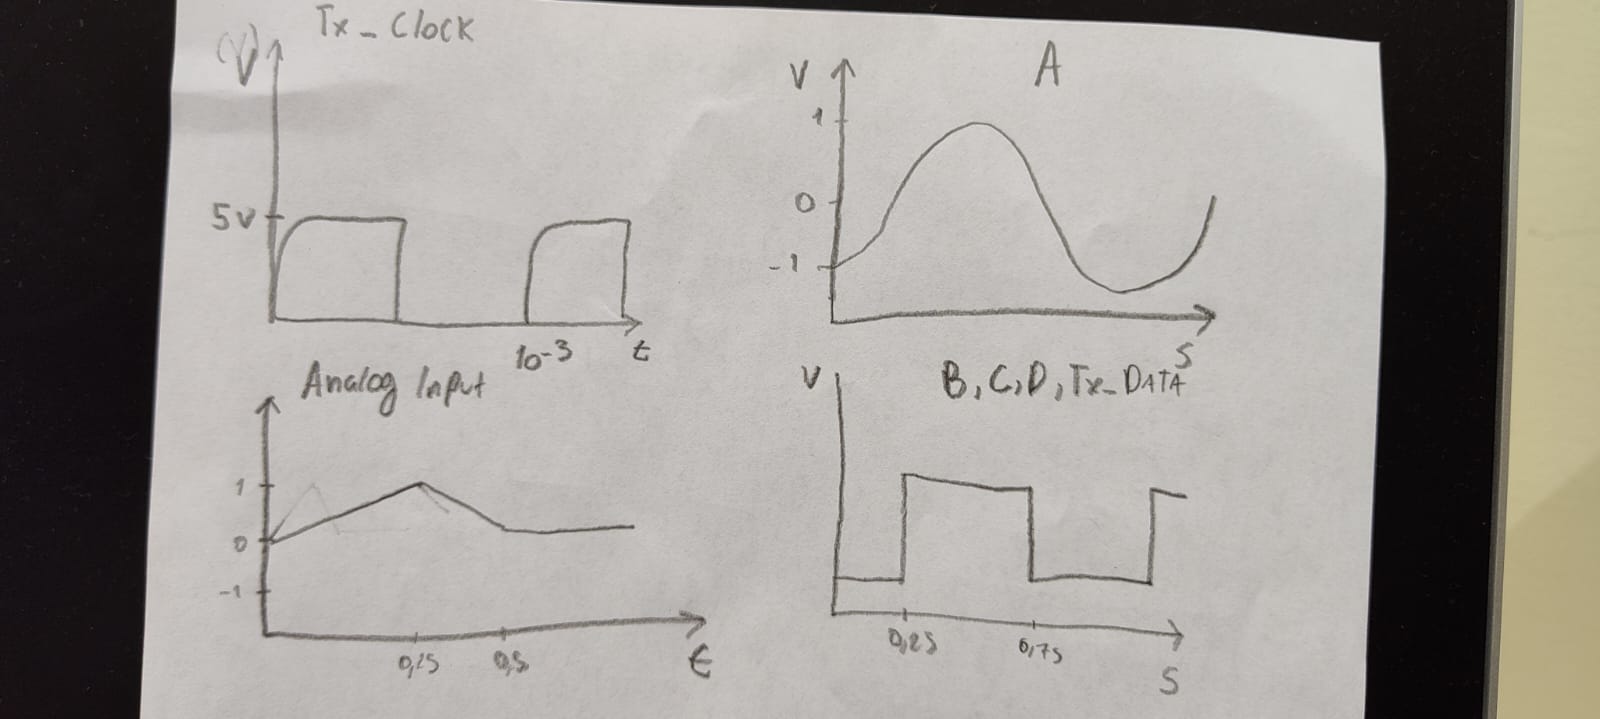 Tx_Clock
(V)
5V
10-3
t
A
V
1
0
-1
S
Analog Input
1
0
-1
0,25
0,5
t
B, C, D, Tx_DATA
V
0,25
0,75
S